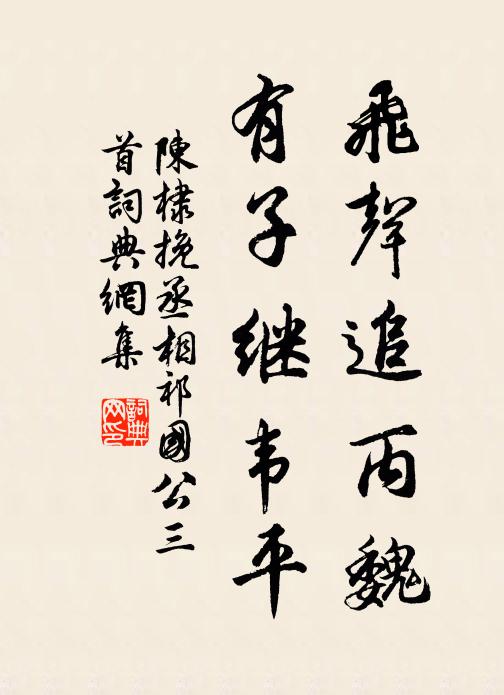 飛聲追丙魏
有子继韦平
陳棣挽丞相祁國公三
首詞典網集
詞典
网印